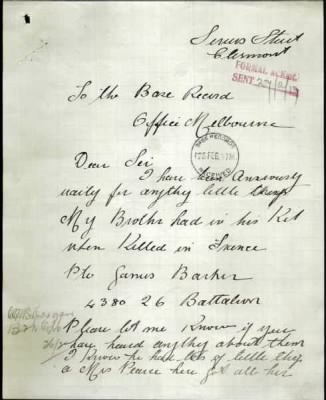 Street
Clermont
FORMAL ACKN
SENT
To the Base Record
Office Melbourne
BASE RECORDS
FEB
RECEIVED
Dear Sir
I have been Anxiously
waity for anythg little things
My Brother had in his Kit
when Killed in France
Pte James Barker
4380 26 Battalion
Please let me Know if you
have heard anythg about them
I Know he had lots of little thg
a Mrs Pearce here got all her